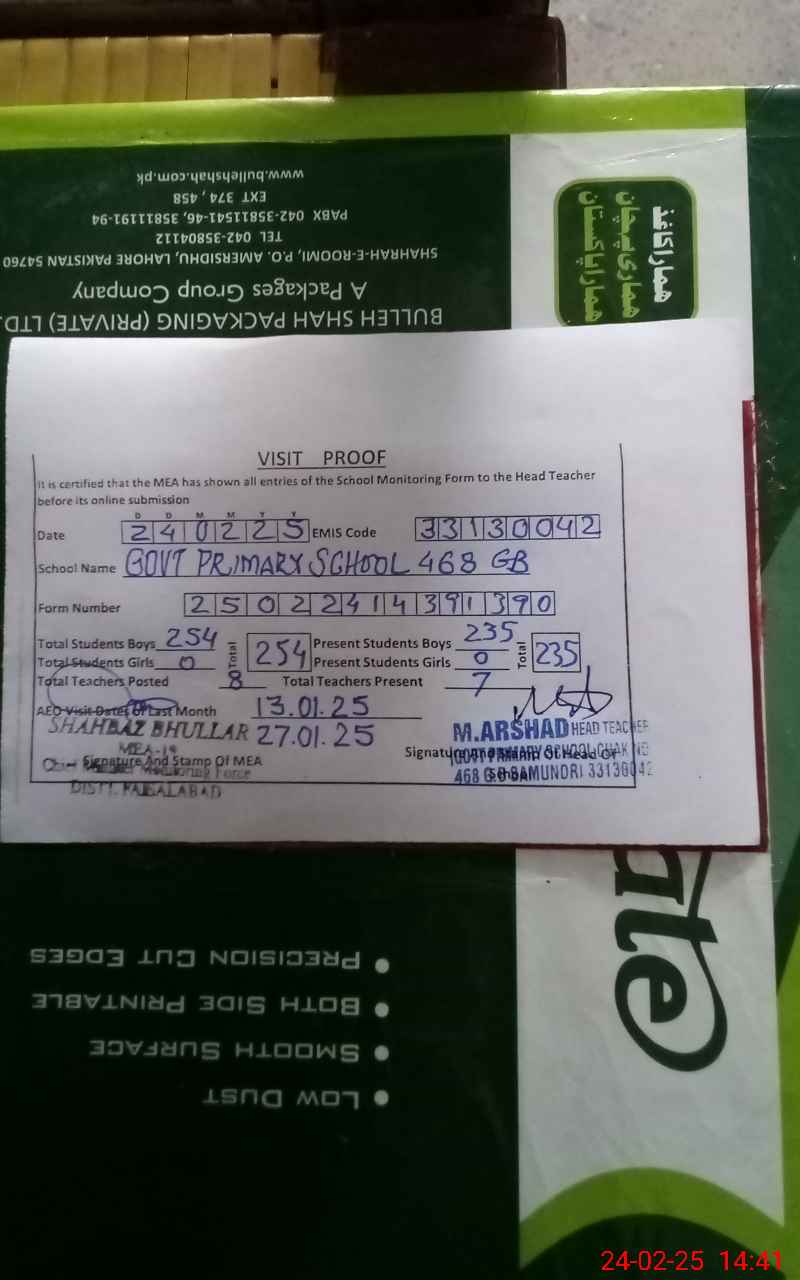 www.bullehshah.com.pk
EXT 374, 458
PABX 042-35811541-46, 35811191-94
TEL 042-35804112
SHAHRAH-E-ROOMI, P.O. AMERSIDHU, LAHORE PAKISTAN 54760
A Packages Group Company
BULLEH SHAH PACKAGING (PRIVATE) LTD.
ھمارا کاغذ
ھماری پہچان
ھمارا پاکستان
VISIT PROOF
It is certified that the MEA has shown all entries of the School Monitoring Form to the Head Teacher
before its online submission
D D M M Y Y
Date 240225 EMIS Code 33130042
School Name GOVT PRIMARY SCHOOL 468 GB
Form Number 2502241439 1390
Total Students Boys 254 Total 254 Present Students Boys 235 Total 235
Total Students Girls 0 Present Students Girls 0
Total Teachers Posted 8 Total Teachers Present 7
AEO Visit Dates of Last Month 13.01.25
27.01.25
SHAHBAZ BHULLAR
MEA-19
Signature And Stamp Of MEA
Monitoring Force
DISTT. FAISALABAD
M.ARSHAD HEAD TEACHER
GOVT PRIMARY SCHOOL CHAK NO
Signature And Stamp Of Head Of
468 G.B SAMUNDRI 33130042
ate
PRECISION CUT EDGES
BOTH SIDE PRINTABLE
SMOOTH SURFACE
LOW DUST
24-02-25 14:41